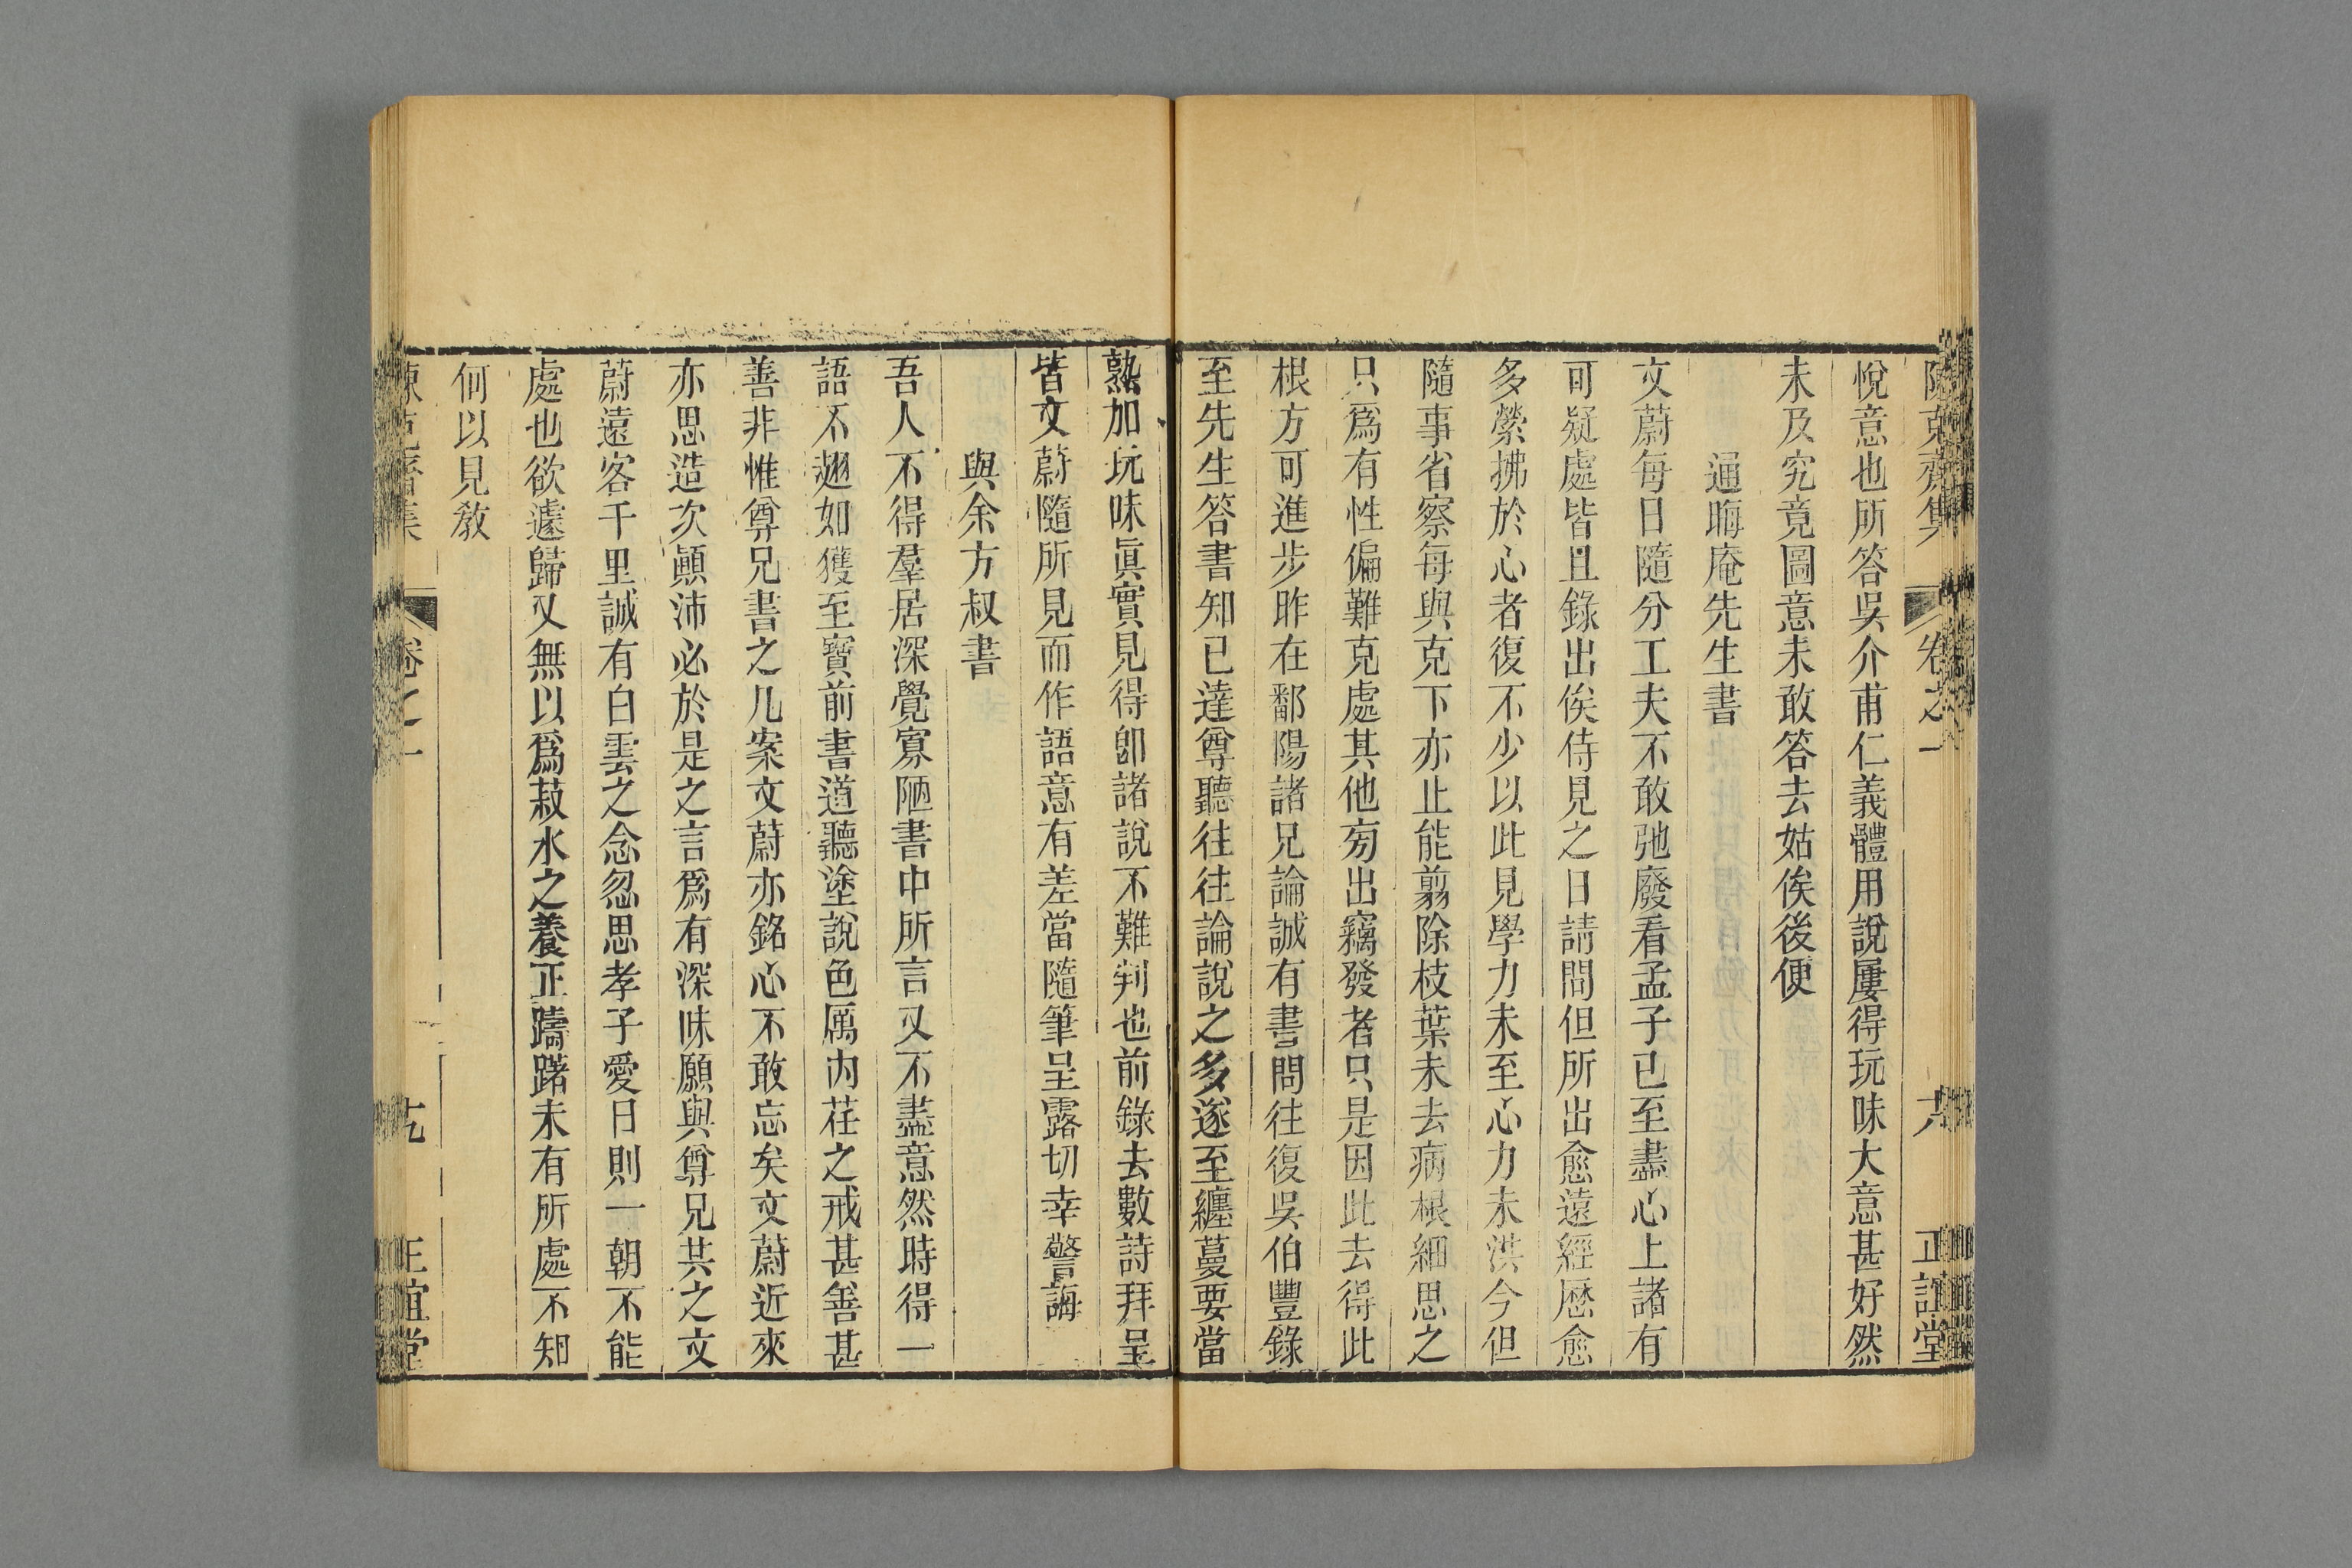 陳克齋集 卷之一 六 正誼堂
悅意也所答吳介甫仁義體用說屢得玩味大意甚好然
未及究竟圖意未敢答去姑俟後便
通晦庵先生書
文蔚每日隨分工夫不敢弛廢看孟子已至盡心上諸有
可疑處皆且錄出俟侍見之日請問但所出愈遠經歷愈
多縈拂於心者復不少以此見學力未至心力未洪今但
隨事省察每與克下亦止能剪除枝葉未去病根細思之
只爲有性偏難克處其他旁出竊發者只是因此去得此
根方可進步昨在鄱陽諸兄論誠有書問往復吳伯豐錄
至先生答書知已達尊聽往往論說之多遂至纏蔓要當
熟加玩味眞實見得卽諸說不難判也前錄去數詩拜呈
皆文蔚隨所見而作語意有差當隨筆呈露切幸警誨
與余方叔書
吾人不得羣居深覺寡陋書中所言又不盡意然時得一
語不翅如獲至寶前書道聽塗說色厲內荏之戒甚善甚
善非惟尊兄書之几案文蔚亦銘心不敢忘矣文蔚近來
亦思造次顚沛必於是之言爲有深味願與尊兄共之文
蔚遠客千里誠有白雲之念忽思孝子愛日則一朝不能
處也欲遽歸又無以爲菽水之養正躊躇未有所處不知
何以見敎
陳克齋集 卷之一 正誼堂